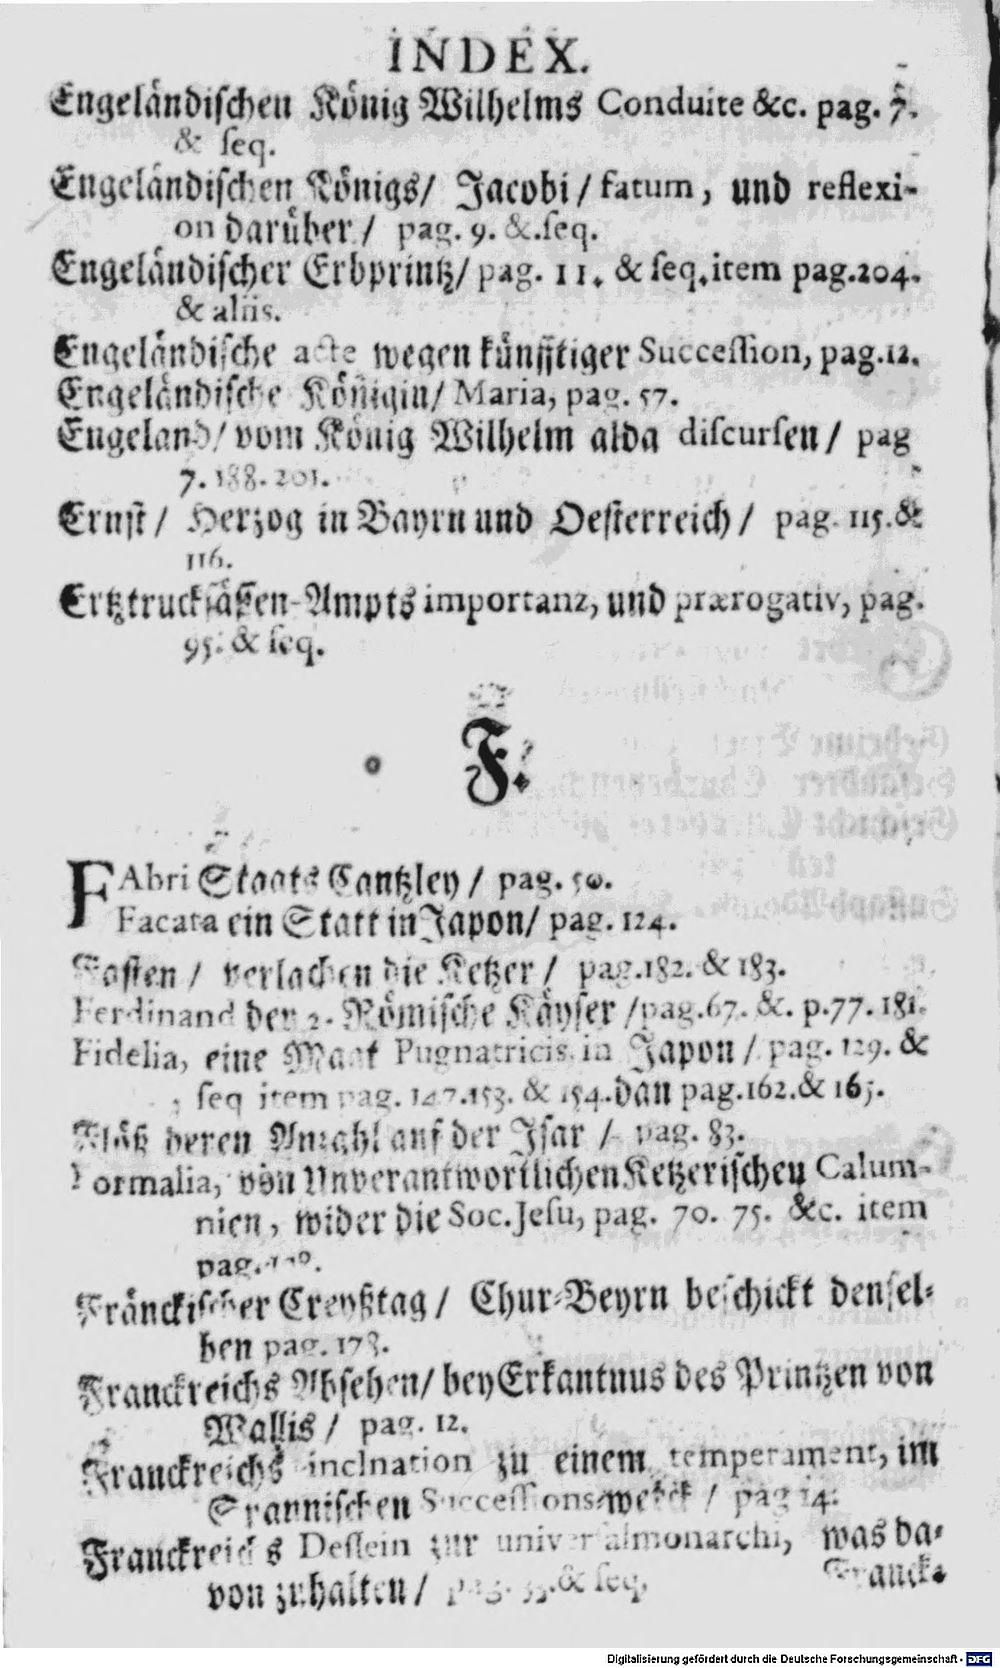 INDEX.
Engeländischen König Wilhelms Conduite &c. pag. 7.
& ſeq.
Engeländischen Königs/ Jacobi/ fatum, und reflexi-
on darüber/ pag. 9. &.ſeq.
Engeländischer Erbprintz/ pag. 11. & ſeq. item pag.204.
& aliis.
Engeländische acte wegen künfftiger Succeſſion, pag.12.
Engeländische Königin/ Maria, pag. 57.
Engeland/ vom König Wilhelm alda diſcurſen/ pag
7. 188. 201.
Ernſt/ Herzog in Bayrn und Oeſterreich/ pag. 115. &
116.
Ertztruckſäſſen-Ampts importanz, und prærogativ, pag.
95. & ſeq.
F.
FAbri Staats Cantzley/ pag. 50.
Facata ein Statt in Japon/ pag. 124.
Faſten/ verlachen die Ketzer/ pag.182. & 183.
Ferdinand der 2. Römiſche Käyſer/ pag.67. &. p.77. 181.
Fidelia, eine Maat Pugnatricis in Japon/ pag. 129. &
ſeq item pag. 147.153. & 154. dan pag.162.& 165.
Flöß deren Anzahl auf der Iſar/ pag. 83.
Formalia, von Unverantwortlichen Ketzeriſchen Calum-
nien, wider die Soc. Jeſu, pag. 70. 75. &c. item
pag.
Fränckiſcher Creyßtag/ Chur-Beyrn beſchickt denſel-
ben pag. 178.
Franckreichs Abſehen/ bey Erkantnus des Printzen von
Wallis/ pag. 12.
Franckreichs inclnation zu einem temperament, im
Spanniſchen Succeſſions-werck/ pag 14.
Franckreichs Deſſein zur univerſalmonarchi, was da-
von zu halten/ pag. & ſeq.
Franck-
Digitalisierung gefördert durch die Deutsche Forschungsgemeinschaft - DFG